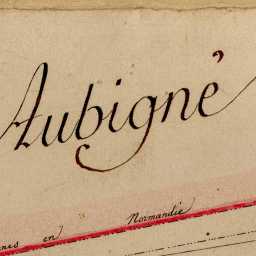 Aubigné
en Normandie